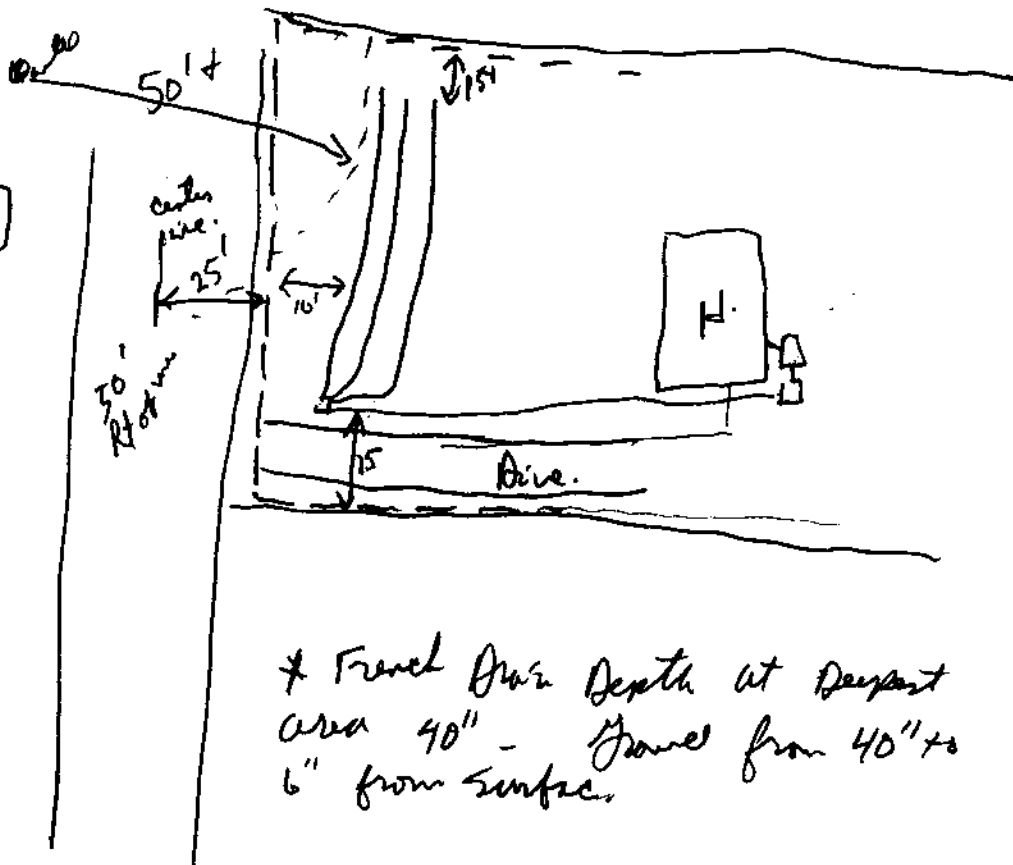 50'+
15'
center
line.
25'
10'
50'
Rt of
H.
75
Drive.
* French Drain Depth at Deepest
area 40" - Gravel from 40" to
6" from Surfac.